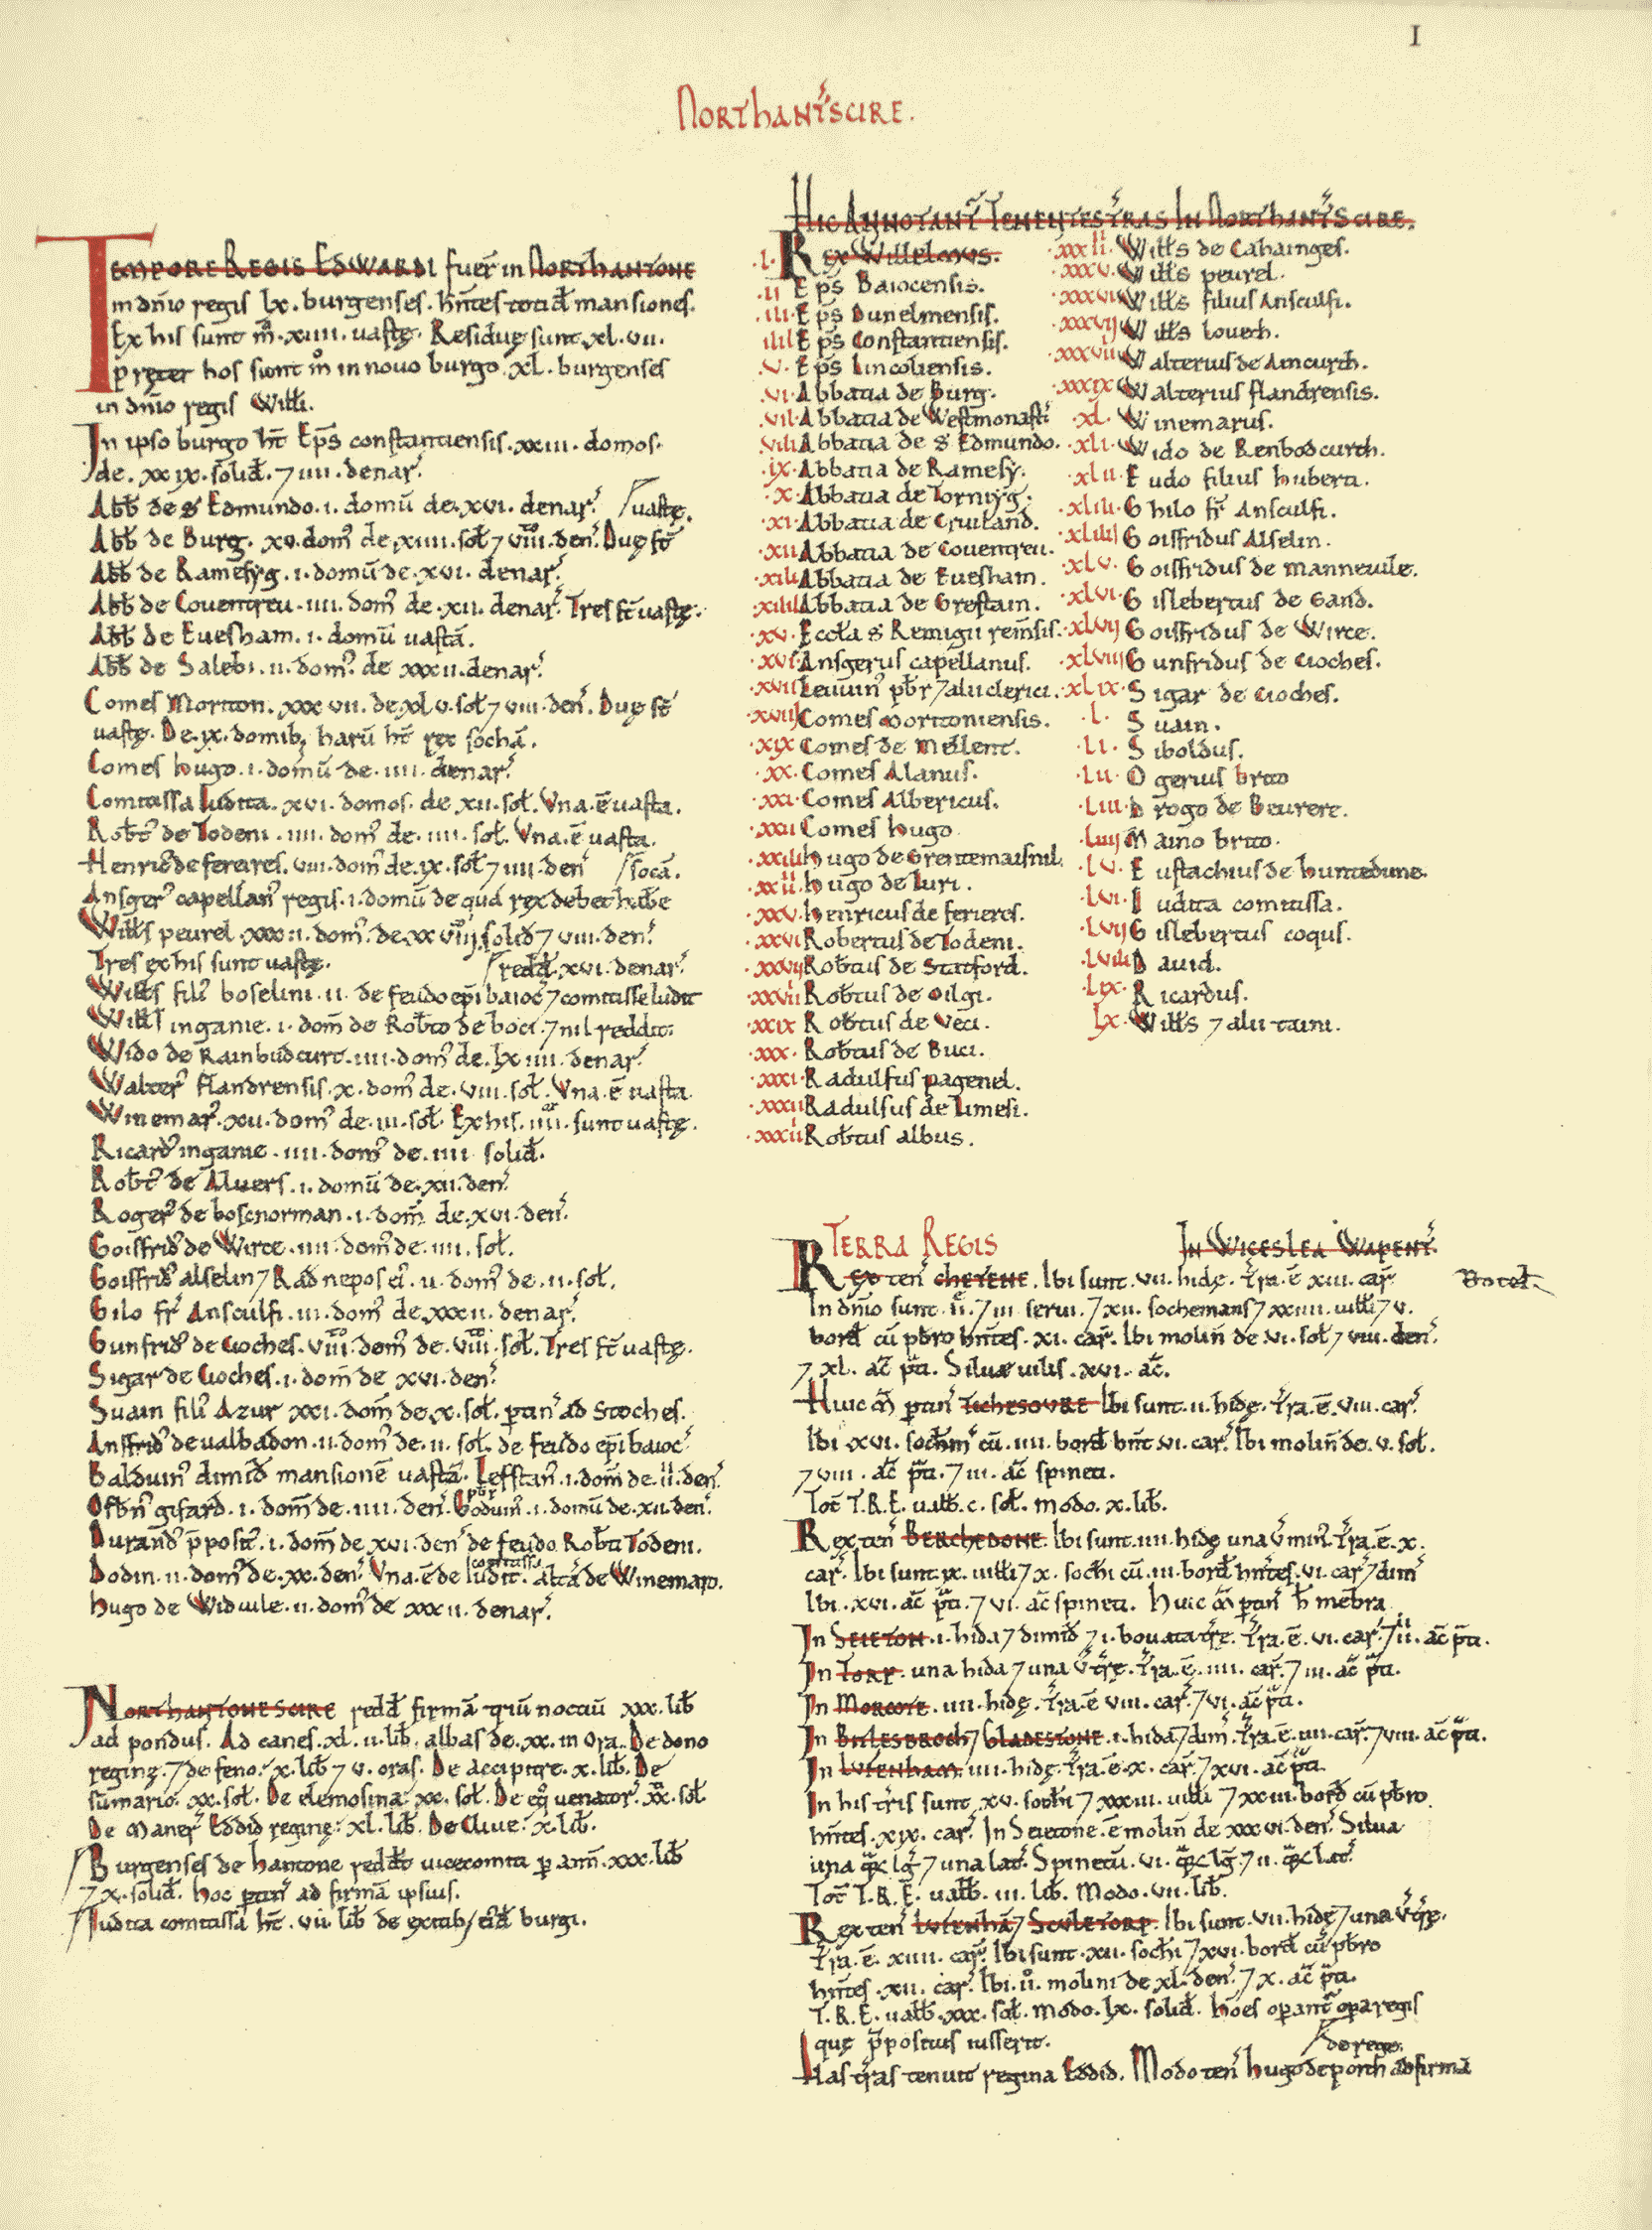 I
NORTHANT'SCIRE.
TEMPORE REGIS EDWARDI fuer̄ in NORTHANTONE
in dn̄io regis lx. burgenses. hn̄tes totid̄ mansiones.
Ex his sunt m̊. xiiii. uastę. Residuę sunt. xl. vii.
Pręter hos sunt m̊ in nouo burgo. xl. burgenses
in dn̄io regis Willi.
In ipso burgo ht̄ Ep̄s constantiensis. xxiii. domos.
de. xxix. solid̄. ⁊ iiii. denar'.
Abb̄ de S' Edmundo. i. domū de. xvi. denar'. / uastę.
Abb̄ de Burg. xv. dom' de. xiiii. sol ⁊ viii. den'. Duę st̄
Abb̄ de Ramesyg. i. domū de. xvi. denar'.
Abb̄ de Couentreu. iiii. dom' de. xii. denar'. Tres st̄ uastę.
Abb̄ de Euesham. i. domū uastā.
Abb̄ de Salebi. ii. dom' de xxxii. denar'.
Comes Moriton. xxxvii. de. xlv. sol ⁊ viii. den'. Duę st̄
uastę. De. ix. domib; harū ht̄ rex sochā.
Comes hugo. i. domū de. iiii. denar'.
Comitissa Iudita. xvi. domos. de xii. sol. Vna. ē uasta.
Robt' de Todeni. iiii. dom' de. iiii. sol. Vna. ē uasta.
Henric' de fereires. viii. dom' de. ix. sol ⁊ iiii. den' / socā.
Ansger' capellan' regis. i. domū de qua rex debet hab̄e
Wills peurel. xxxii. dom'. de. xxviii. solid ⁊ viii. den'.
Tres ex his sunt uastę. / redd̄. xvi. denar'.
Wills fili' boselini. ii. de feudo ep̄i baioc' ⁊ comitisse Iudit
Wills inganie. i. dom̄ de Robto de boci. ⁊ nil reddit.
Wido de Rainbudcurt. iiii. dom' de. lxiiii. denar'.
Walter' flandrensis. x. dom' de. viii. sol. Vna. ē uasta.
Winemar'. xii. dom' de. iii. sol. Ex his. iiii. sunt uastę.
Ricard' inganie. iiii. dom' de. iiii solid.
Robt' de Aluers. i. domū de. xii. den'.
Roger' de boscnorman. i. dom̄ de. xvi. den'.
Goisfrid' de Wirce. iiii. dom' de. iiii. sol.
Goisfrid' alselin ⁊ Rad nepos ei'. ii. dom' de. ii. sol.
Gilo fr̄ Ansculfi. iii. dom' de. xxxii. denar'.
Gunfrid' de Cioches. viii. dom' de. viii. sol. Tres st̄ uastę.
Sigar de Cioches. i. dom̄ de xvi. den'.
Suain fili' Azur xxi. dom̄ de. x. sol. ptin' ad Stoches.
Ansfrid' de ualbadon. ii. dom' de. ii. sol. de feudo ep̄i baioc'
Balduin' dimid̄ mansionē uastā. Lefstan'. i. dom̄ de. ii. den'.
Osbn' gifard. i. dom̄ de. iiii. den'. Goduin' pbr. i. domū de. xii. den'.
Durand' p̄posit'. i. dom̄ de. xvi. den' de feudo Robti Todeni.
Dodin. ii. dom' de. xx. den'. Vna. ē de Iudit' comitissa. altā de Winemaro.
hugo de Widuile. ii. dom' de xxxii. denar'.
NORTHANTONESCIRE redd̄ firmā triū noctiū xxx. lib
ad pondus. Ad canes. xl. ii. lib. albas de. xx. in Ora. De dono
reginę. ⁊ de feno: x. lib ⁊ v. oras. De accipitre. x. lib. De
sūmario. xx. sol. De elemosina: xx. sol. De eq̊ uenator'. xx. sol
De Maner' Eddid reginę: xl. lib. De Cliue: x. lib.
Burgenses de hantone reddt̄ uicecomiti p ann̄. xxx. lib
⁊ x. solid̄. hoc ptin' ad firmā ipsius.
Iudita comitissa ht̄. vii. lib de exitib; eid̄ burgi.
HIC ANNOTANT' TENENTES T'RAS IN NORTHANT'SCIRE.
.I. REX Willelmus.
.ii Ep̄s Baiocensis.
.iii. Ep̄s Dunelmensis.
iiii Ep̄s Constantiensis.
.v. Ep̄s Lincoliensis.
.vi. Abbatia de Burg.
.vii. Abbatia de Westmonast'.
.viii Abbatia de S' Edmundo.
.ix. Abbatia de Ramesy.
.x. Abbatia de Torniyg.
.xi. Abbatia de Cruiland.
.xii Abbatia de Couentreu.
.xiii Abbatia de Euesham.
.xiiii Abbatia de Grestain.
.xv. Eccla S' Remigii rem̄sis.
.xvi. Ansgerus capellanus.
.xvii Leuuin' pbr ⁊ alii clerici.
.xviii Comes Moritoniensis.
.xix Comes de Mellent.
.xx. Comes Alanus.
.xxi. Comes Albericus.
.xxii Comes hugo
.xxiii hugo de Grentemaisnil.
.xxiiii. hugo de Iuri.
.xxv. henricus de ferieres.
.xxvi Robertus de Todeni.
.xxvii Robtus de Statford.
.xxviii Robtus de Oilgi.
.xxix Robtus de Veci.
.xxx. Robtus de Buci.
.xxxi. Radulfus pagenel.
.xxxii Radulfus de Limesi.
.xxxiii Robtus albus.
.xxxiiii. Wills de Cahainges.
.xxxv. Wills peurel.
.xxxvi Wills filius Ansculfi.
.xxxvij Wills louech.
.xxxviii Walterius de Aincurth.
.xxxix Walterius flandrensis.
.xl. Winemarus.
.xli. Wido de Renbodcurth.
.xlii. Eudo filius huberti.
.xliii. Ghilo fr̄ Ansculfi.
.xliiii Goisfridus Alselin.
.xlv. Goisfridus de manneuile.
.xlvi. Gislebertus de Gand.
.xlvij Goisfridus de Wirce.
.xlviii Gunfridus de Cioches.
.xlix. Sigar de Cioches.
.l. Suain.
.li. Siboldus.
.lii. Ogerius brito
.liii. Drogo de Beurere.
.liiii Maino brito.
.lv. Eustachius de huntedune.
.lvi. Iudita comitissa.
.lvij Gislebertus coqus.
.lviii Dauid.
.lix. Ricardus.
lx. Wills ⁊ alii taini.
TERRA REGIS
IN WICESLEA WAPENT'.
REX ten' CHETENE. Ibi sunt. vii. hidę. Tra. ē xiii. car'.
In dn̄io sunt. ii. ⁊ iii serui. ⁊ xii. sochemans ⁊ xxiiii. uilli ⁊ v.
bord̄ cū pbro hn̄tes. xi. car'. Ibi molin̄ de. vi. sol ⁊ viii. den'.
⁊ xl. ac̄ p̄ti. Siluæ uilis. xvi. ac̄.
Huic M̄ ptin' TICHESOVRE Ibi sunt. ii. hidę. Tra. ē. viii. car'.
Ibi xvi. sochm̄' cū. iiii. bord̄ hn̄t. vi. car'. Ibi molin̄ de. v. sol.
⁊ viii. ac̄ p̄ti. ⁊ iii. ac̄ spineti.
Tot̄ T.R.E. ualb. c. sol. modo. x. lib.
Rex ten' BERCHEDONE. Ibi sunt. iiii. hidę una v̄ min'. Tra. ē. x.
car'. Ibi sunt. ix. uilli ⁊ x. sochi cū. iii. bord̄ hn̄tes. vi. car' ⁊ dim̄
Ibi. xvi. ac̄ p̄ti. ⁊ vi. ac̄ spineti. Huic M̄ ptin' h̄ mēbra
In SEIETON. i. hida ⁊ dimid̄ ⁊ i. bouata trę. Tra. ē. vi. car'. ⁊ ii. ac̄ p̄ti.
In TORP. una hida ⁊ una v̄ trę. Tra. ē. iiii. car'. ⁊ iii. ac̄ p̄ti.
In MORCOTE. iiii. hidę. Tra. ē viii. car'. ⁊ vi. ac̄ p̄ti.
In BITLESBROCH ⁊ GLADESTONE. i. hida ⁊ dim̄. Tra. ē. iiii. car'. ⁊ viii. ac̄ p̄ti.
In LVFENHAM. iiii. hidę. Tra. ē. x. car'. ⁊ xvi. ac̄ p̄ti.
In his tris sunt. xv. sochi ⁊ xxxiii. uilli ⁊ xxiii. bord̄ cū pbro
hn̄tes. xix. car'. In Seietone. ē molin̄ de xxxvi. den'. Silua
una q̄ꝝ lg̅ ⁊ una lat'. Spinetū. vi. q̄ꝝ lg̅. ⁊ ii. q̄ꝝ lat'.
Tot̄ T.R.E. ualb. iii. lib. Modo. vii. lib.
Rex ten' LVFENHĀ ⁊ SCVLETORP. Ibi sunt. vii. hidę ⁊ una v̄ trę.
Tra. ē. xiiii. car'. Ibi sunt. xii. sochi ⁊ xvi. bord̄ cū pbro
hn̄tes. xii. car'. Ibi. ii. molini de xl. den'. ⁊ x. ac̄ p̄ti.
T.R.E. ualb. xxx. sol. modo. lx. solid̄. hōes opant' opa regis
que p̄positus iusserit. / de rege.
Has tras tenuit regina Eddid. Modo ten' hugo de porth ad firmā